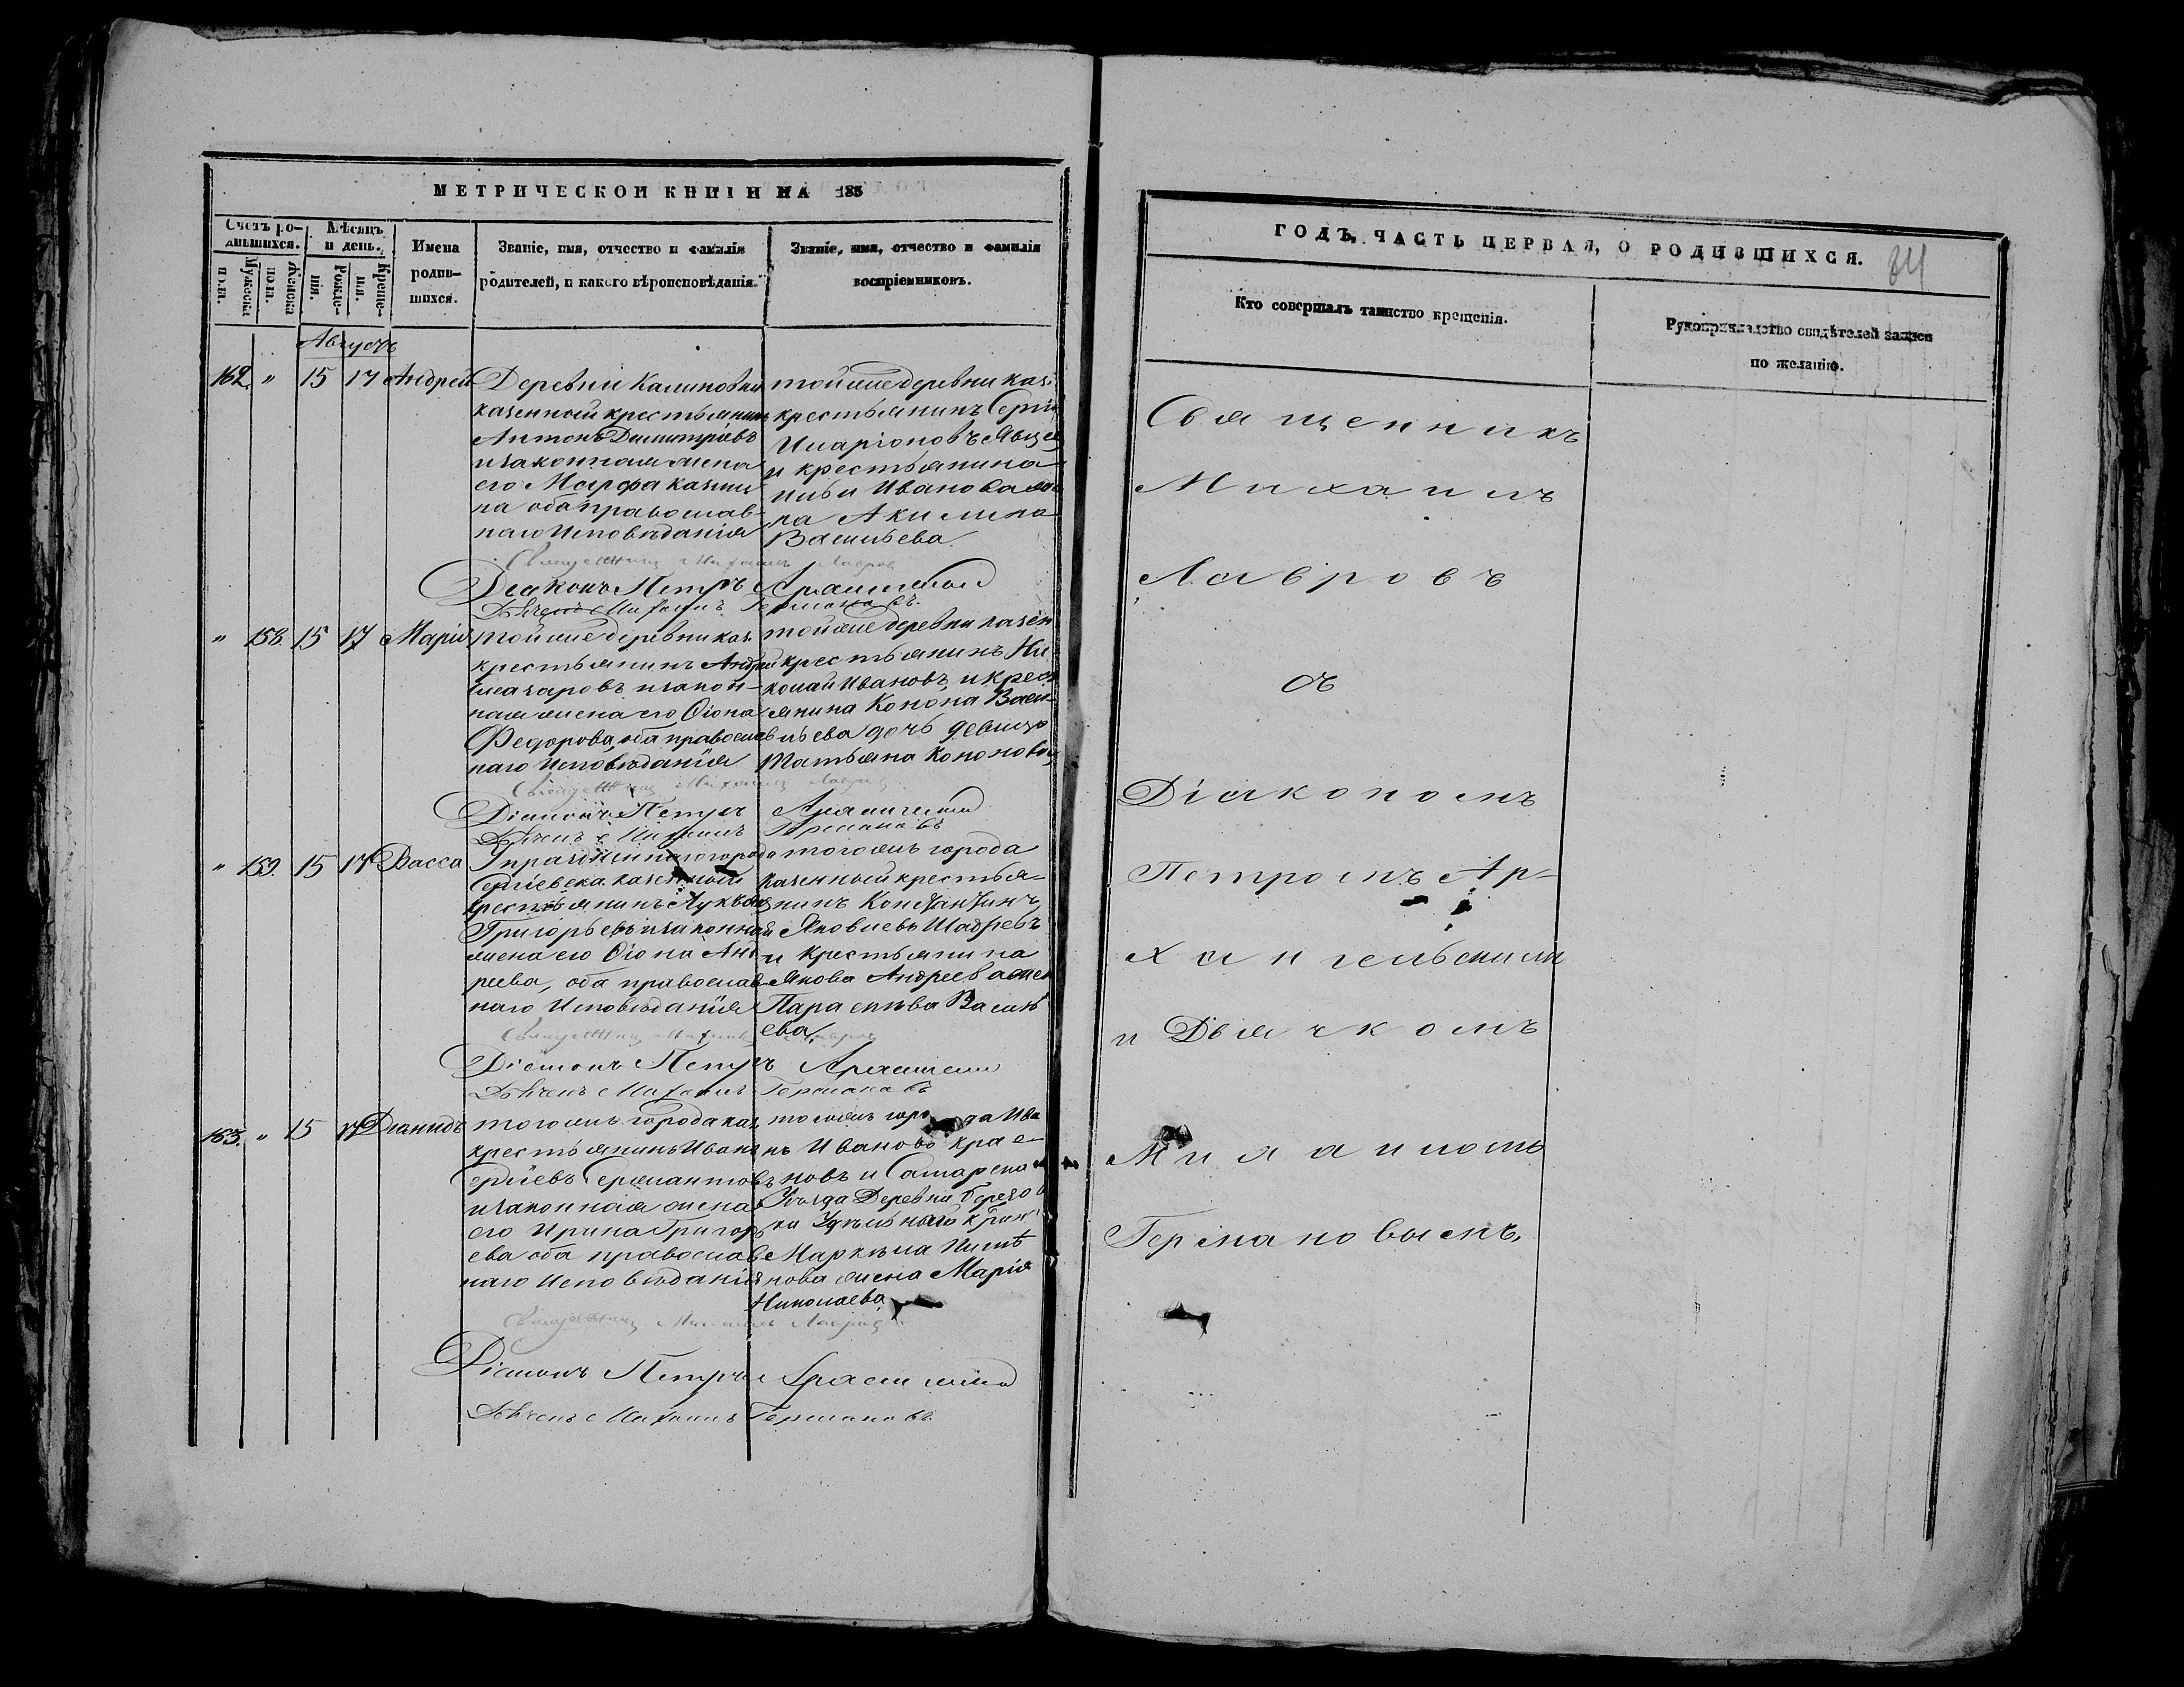 МЕТРИЧЕСКОЙ КНИГИ НА 185
Счетъ ро-
дившихся.
Мѣсяцъ
и день.
Имена
родив-
шихся.
Званіе, имя, отчество и фамилія
родителей, и какого вѣроисповѣданія.
Званіе, имя, отчество и фамилія
воспріемниковъ.
Мужеска
пола.
Женска
пола.
Рожде-
нія.
Креще-
нія.
Августъ
162. " 15 17 Андрей
Деревни Калиновки
казенный крестьянинъ
Антонъ Димитріевъ
и законная жена
его Марфа
на оба православ-
наго Исповѣданія
тойже деревни каз.
крестьянинъ Сергій
Иларіоновъ
и крестьянина
Иванова
на Акилина
Васильева.
Священникъ Михаилъ Лавровъ
Діаконъ Петръ Архангельскій
Дьячекъ Михаилъ Германовъ.
" 158. 15 17 Марія
тойже деревни каз.
крестьянинъ Андрей
и закон-
ная жена его Ѳіона
Федорова, оба православ
наго Исповѣданія
тойже деревни казен
крестьянинъ Ни-
колай Ивановъ, и крест
янина Конона Васи-
льева дочь девица
Татьяна Кононова,
Священникъ Михаилъ Лавровъ
Діаконъ Петръ Архангельскій
Дьячекъ Михаилъ Германовъ
" 159. 15 17 Васса
Упраздненнаго города
Сергіевска казенный
крестьянинъ
Григорьевъ и законная
жена его Ѳіона Анд
реева, оба православ
наго Исповѣданія
тогожъ города
казенный крестья-
нинъ Константинъ
Яковлевъ Шадревъ
и крестьянина
Якова Андреева жен
Параскева Василь
ева,
Священникъ Михаилъ Лавровъ
Діаконъ Петръ Архангельскій
Дьячекъ Михаилъ Германовъ
163. " 15 17 Діанидъ
тогожъ города каз,
крестьянинъ Иванъ
и законная жена
его Ирина Григорь
ева оба православ
наго Исповѣданія
тогожъ города Ива
нъ Ивановъ Крас-
новъ и Самарска
Уѣзда Деревни Березов
ки Удѣльнаго крин
нова жена Марія
Николаева,
Священникъ Михаилъ Лавровъ
Діаконъ Петръ Архангельскій
Дьячекъ Михаилъ Германовъ.
ГОДЪ, ЧАСТЬ ПЕРВАЯ, О РОДИВШИХСЯ.
84
Кто совершалъ таинство крещенія.
Рукоприкладство свидѣтелей записи
по желанію.
Священникъ
Михаилъ
Лавровъ
съ
Діакономъ
Петромъ Ар-
хангельскимъ
и Дьячкомъ
Михаиломъ
Германовымъ.